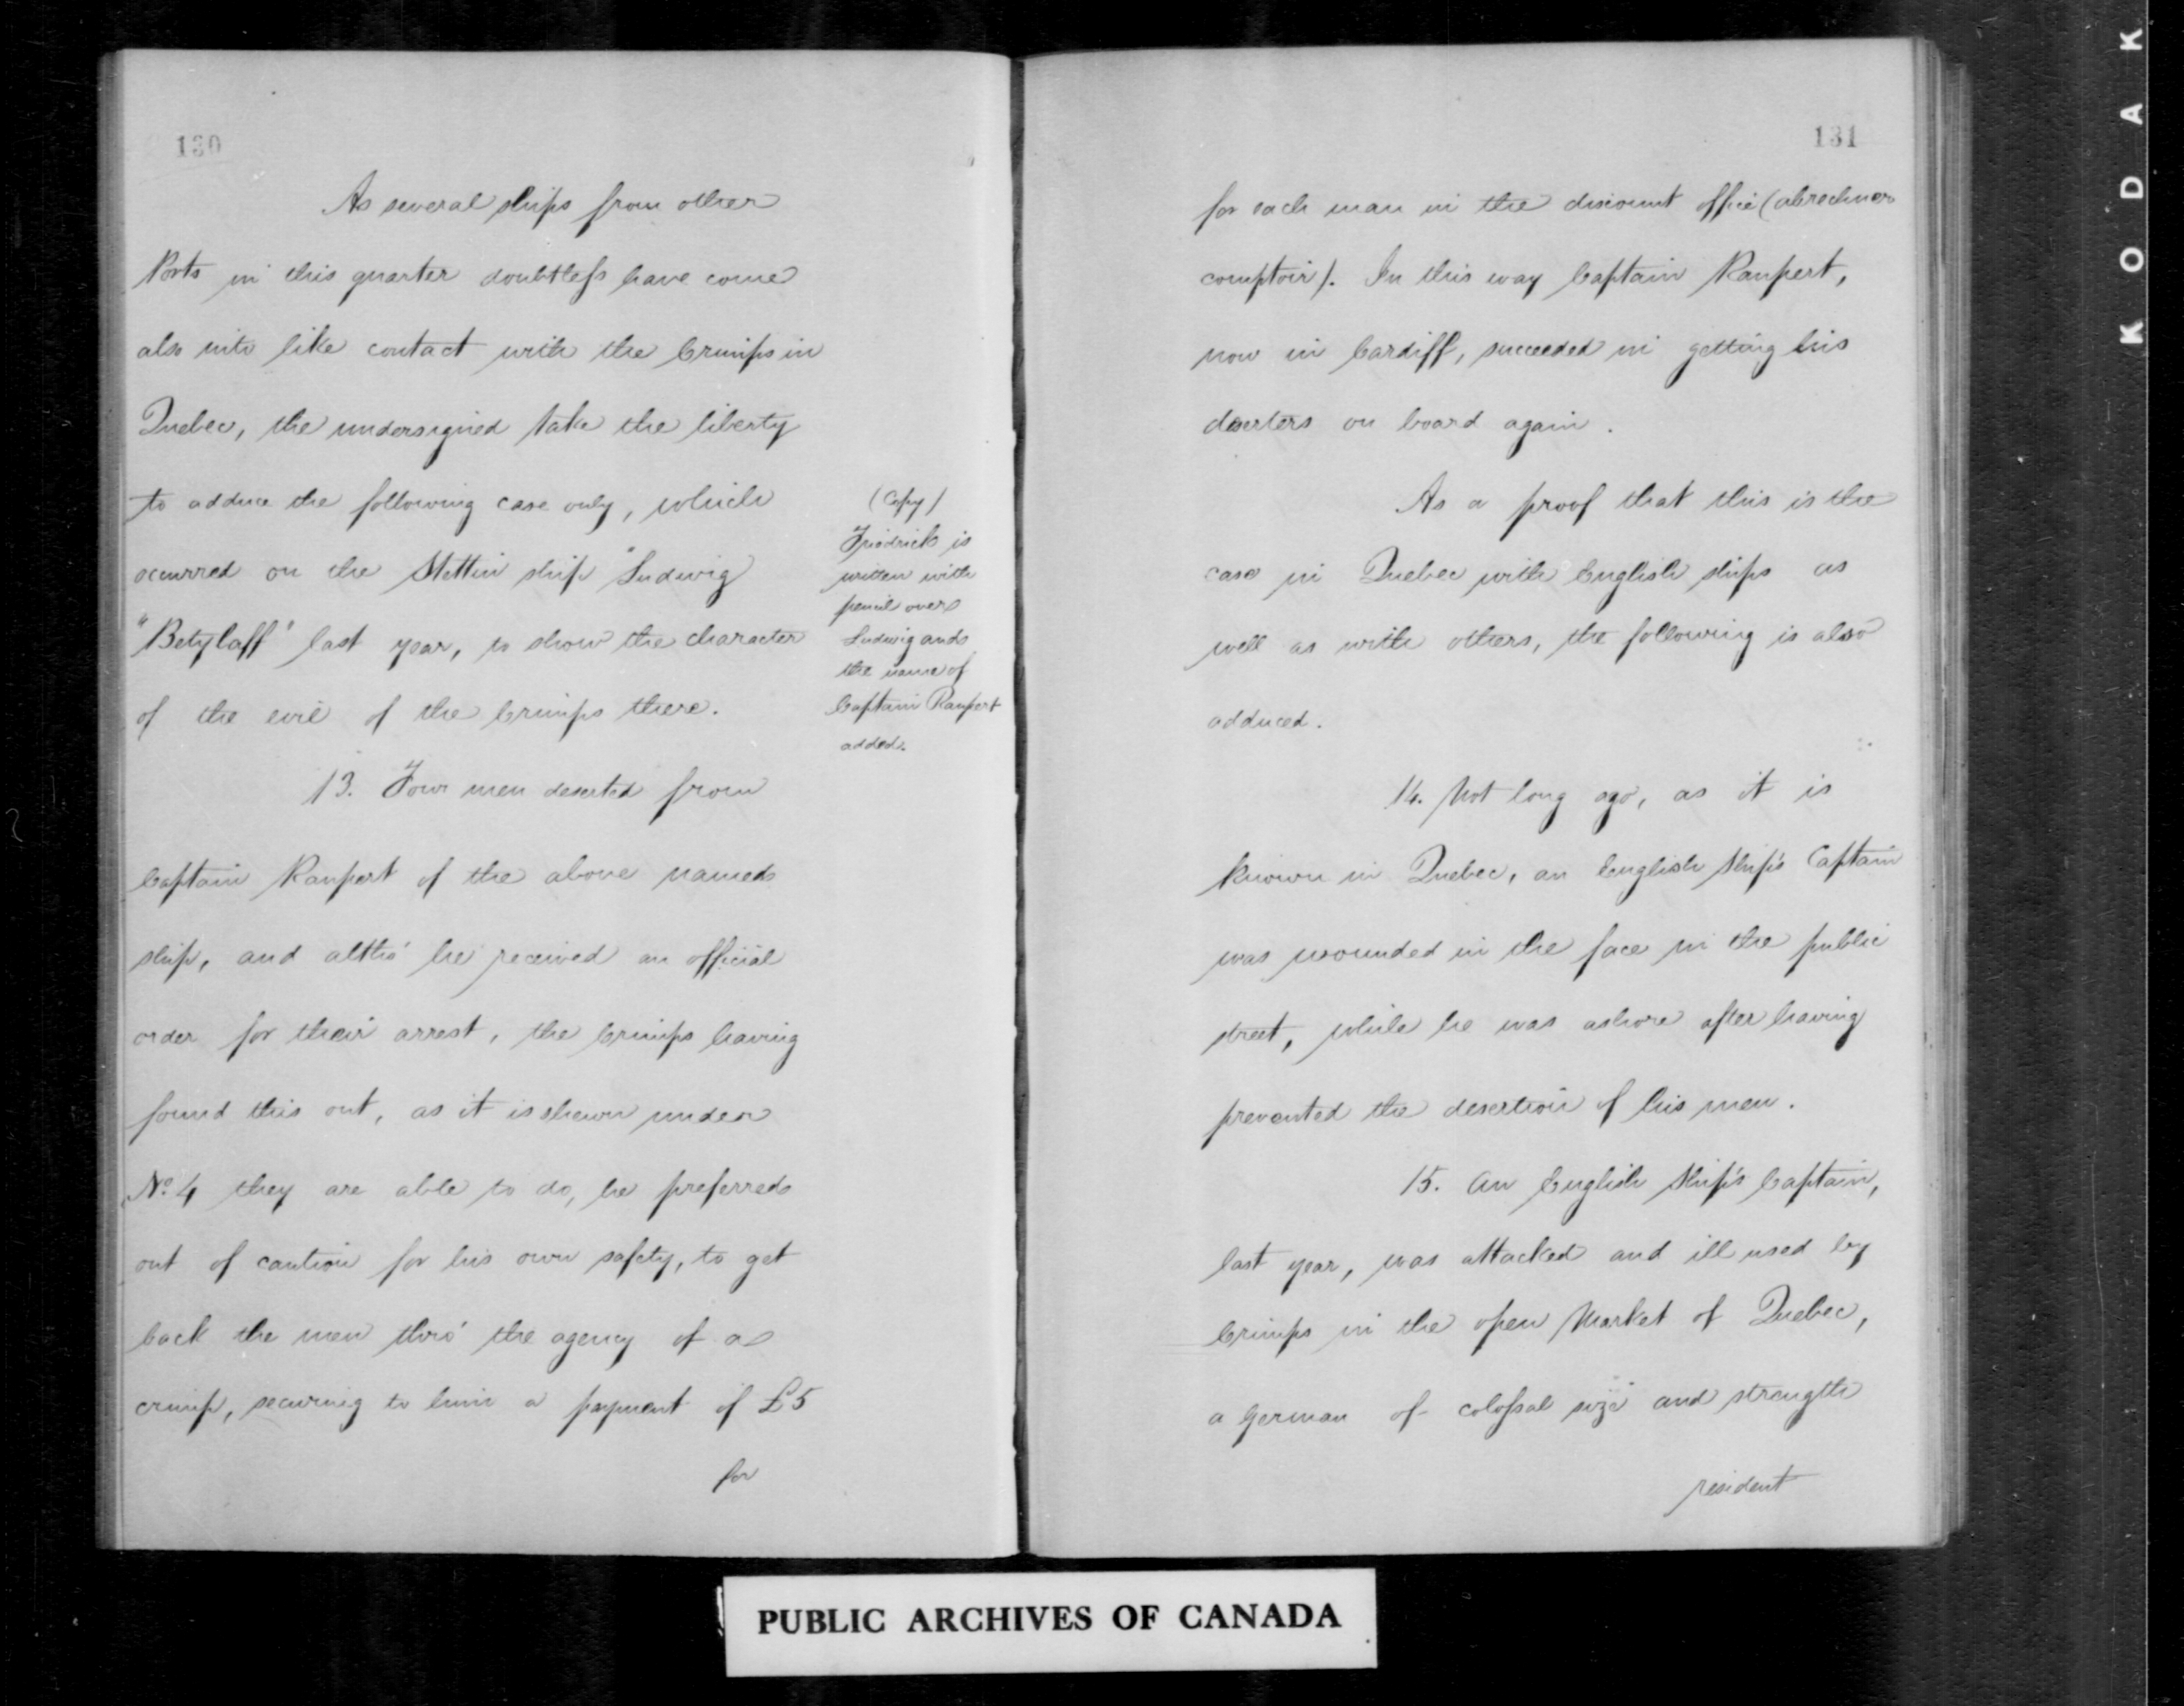 130
As several ships from other
Ports in this quarter doubtless have come
also into like contact with the Crimps in
Quebec, the undersigned take the liberty
to adduce the following case only, which
occurred on the Stettin ship "Ludwig
"Betylaff" last year, to show the character
of the evil of the Crimps there.
(Copy)
Friedrich is
written with
pencil over
Ludwig and
the name of
Captain Raupert
added.
13. Four men deserted from
Captain Raupert of the above named
ship, and altho' he received an official
order for their arrest, the Crimps having
found this out, as it is shewn under
No. 4 they are able to do, he preferred
out of caution for his own safety, to get
back the men thro' the agency of a
crimp, securing to him a payment of £5
for
131
for each man in the discount office (abrechner
comptoir). In this way Captain Raupert,
now in Cardiff, succeeded in getting his
deserters on board again.
As a proof that this is the
case in Quebec with English ships as
well as with others, the following is also
adduced.
14. Not long ago, as it is
known in Quebec, an English Ship's Captain
was wounded in the face in the public
street, while he was ashore after having
prevented the desertion of his men.
15. An English Ship's Captain,
last year, was attacked and ill used by
Crimps in the open Market of Quebec,
a German of colossal size and strength
resident
PUBLIC ARCHIVES OF CANADA
KODAK